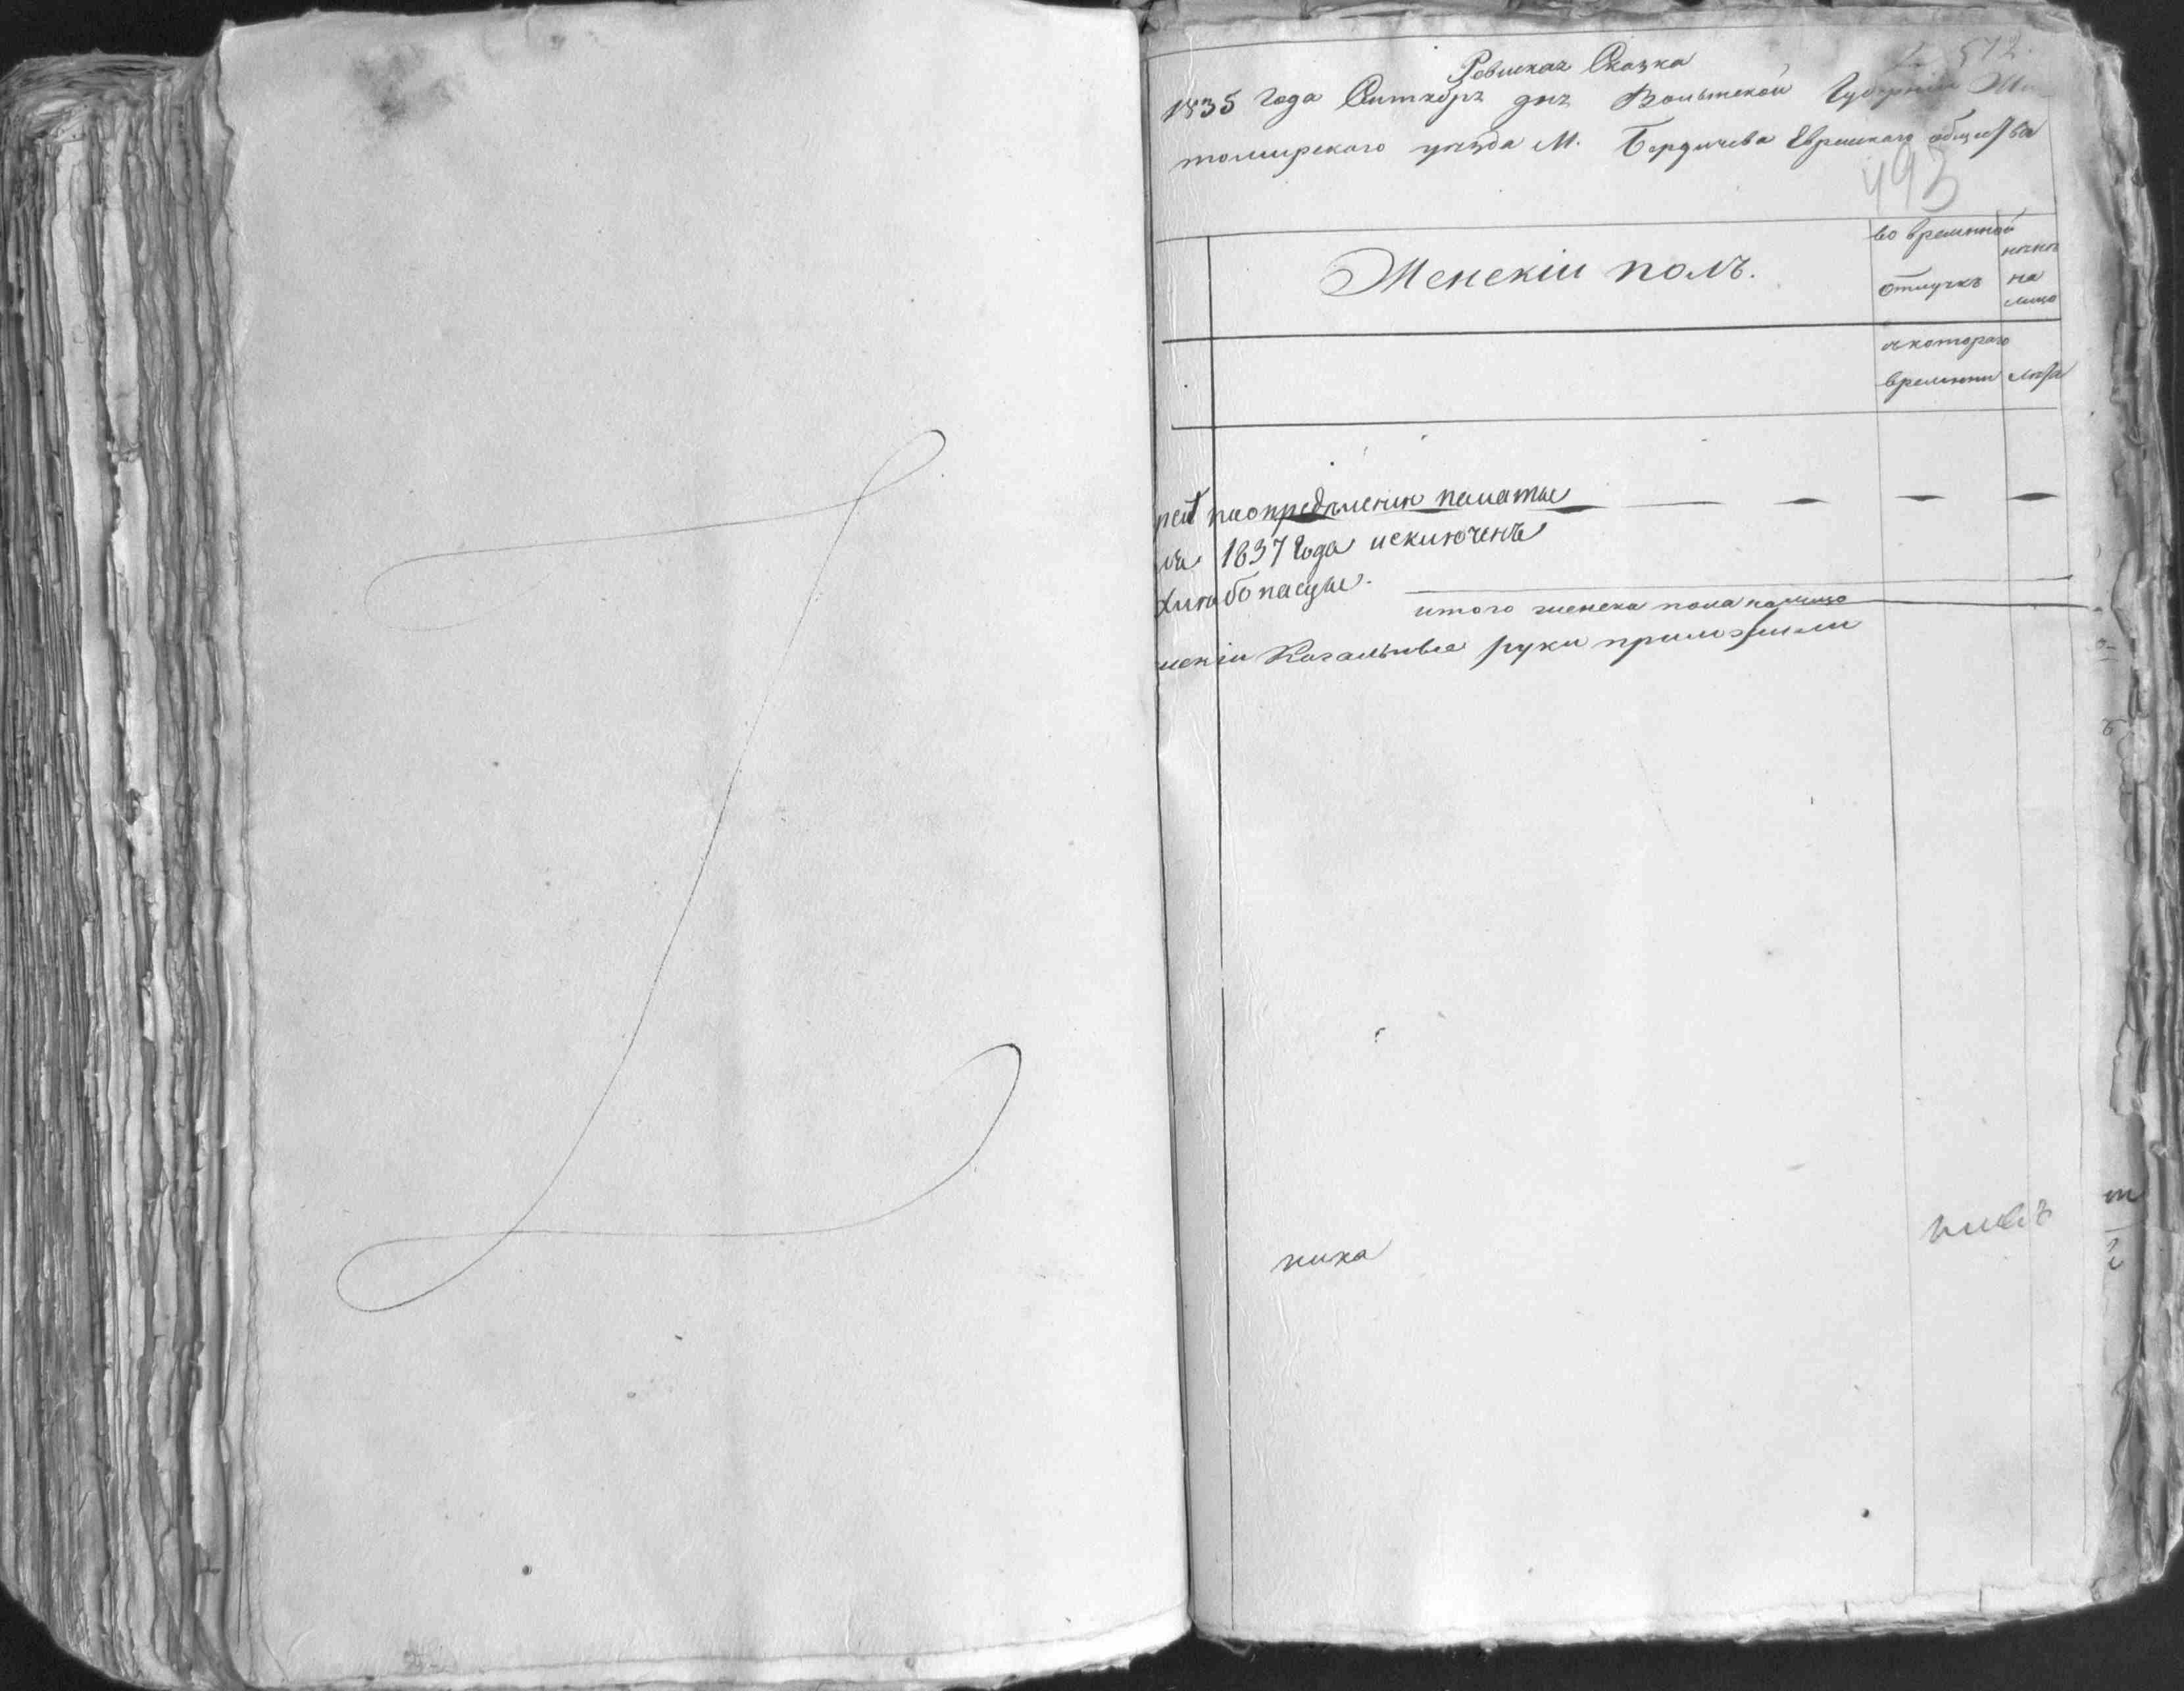 Ревиская Сказка
1835 года Октября дня Волынской Губерніи Жи-
томирскаго уезда М. Бердичева Еврейскаго общества
493
Женскій полъ.
во временной
отлучкѣ
ныне
на
лицо
с котораго
времени
лѣта
по определенію палаты
1837 года исключенъ
хлебопашцы.
итого женска пола на лицо
Кагальные руки приложили